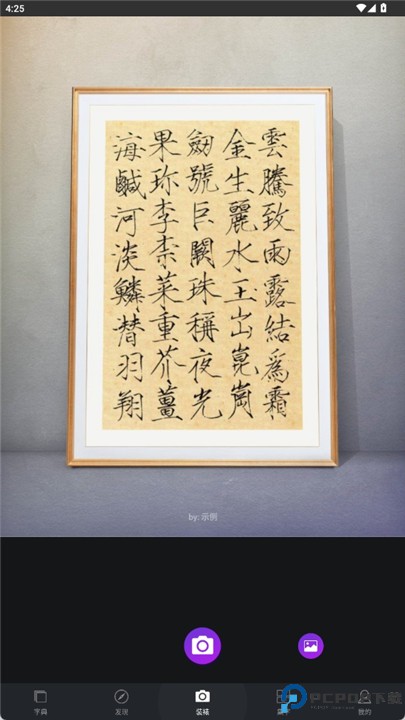 4:25
雲騰致雨露結爲霜
金生麗水玉出崑崗
劒號巨闕珠稱夜光
果珍李柰菜重芥薑
海鹹河淡鱗潛羽翔
by: 示例
字典
发现
装裱
我的
PCPOP下载